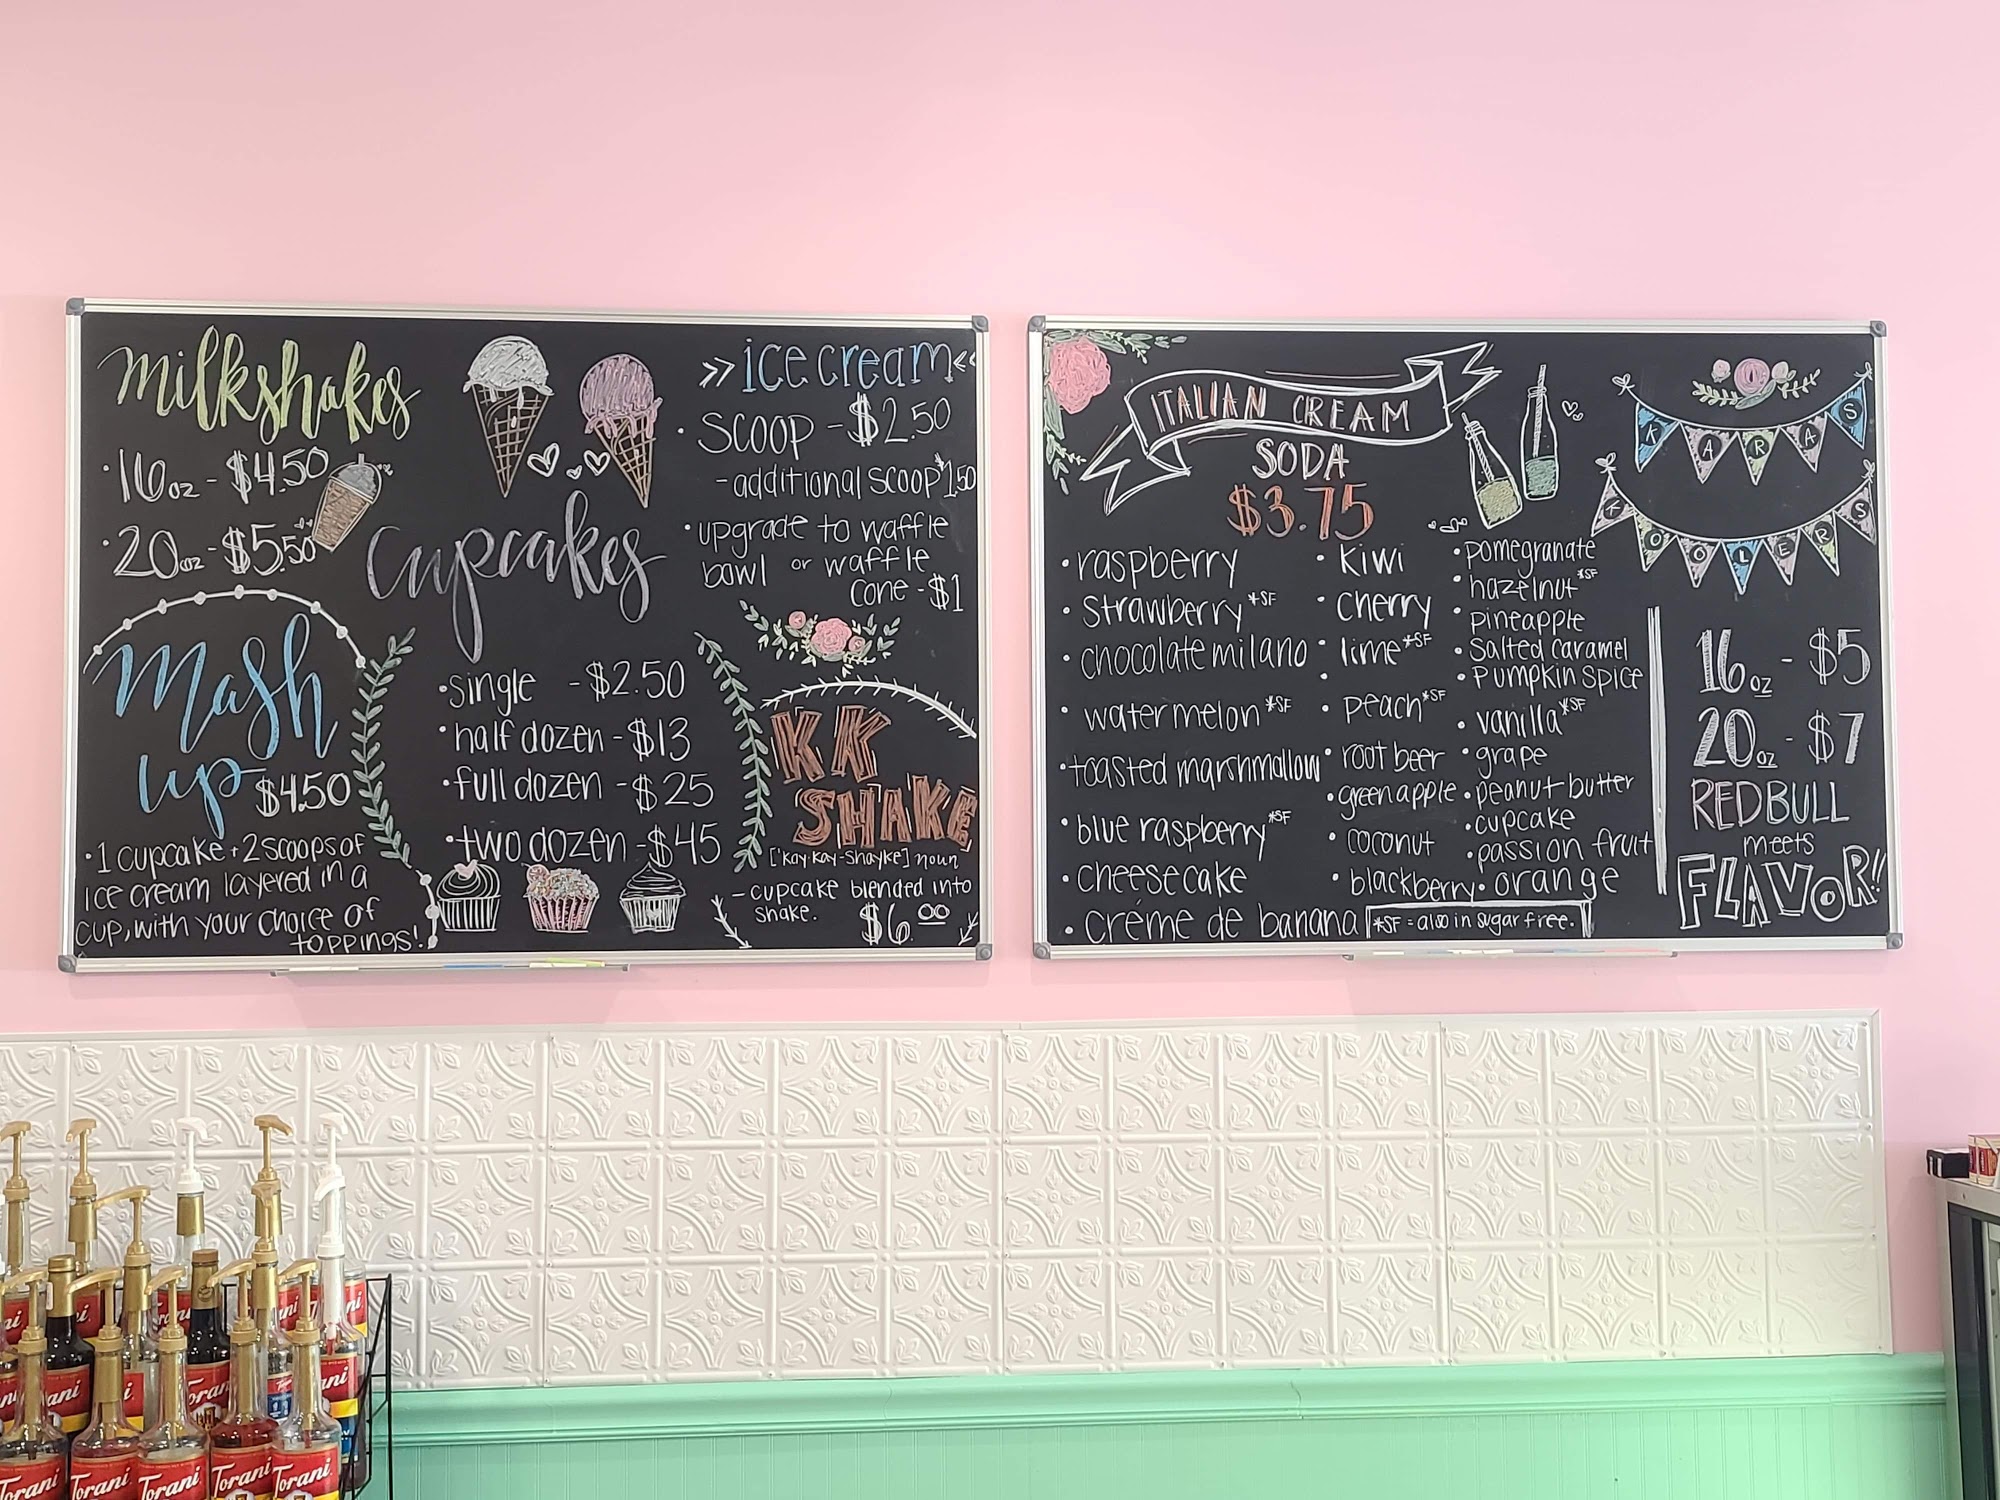 milkshakes
• 16oz - $4.50
• 20oz - $5.50
Mash
up $4.50
• 1 cupcake + 2 scoops of
ice cream layered in a
cup, with your choice of
toppings!
Cupcakes
• single - $2.50
• half dozen - $13
• full dozen - $25
• two dozen - $45
>> ice cream <<
• SCOOP - $2.50
- additional scoop $1.50
• upgrade to waffle
bowl or waffle
cone - $1
KK
SHAKE
['kay·kay-shayke] noun
- cupcake blended into
shake.
$6.00
ITALIAN CREAM
SODA
$3.75
• raspberry
• strawberry *SF
• chocolate milano
• watermelon *SF
• toasted marshmallow
• blue raspberry *SF
• cheesecake
• créme de banana
• kiwi
• cherry
• lime *SF
•
• peach *SF
• root beer
• green apple
• coconut
• blackberry
• pomegranate
• hazelnut *SF
• pineapple
• salted caramel
• pumpkin spice
• vanilla *SF
• grape
• peanut butter
• cupcake
• passion fruit
• orange
*SF = also in sugar free.
KARAS
KOOLERS
16oz - $5
20oz - $7
REDBULL
meets
FLAVOR!!
Torani
Torani
Torani
Torani
Torani
Torani
Torani